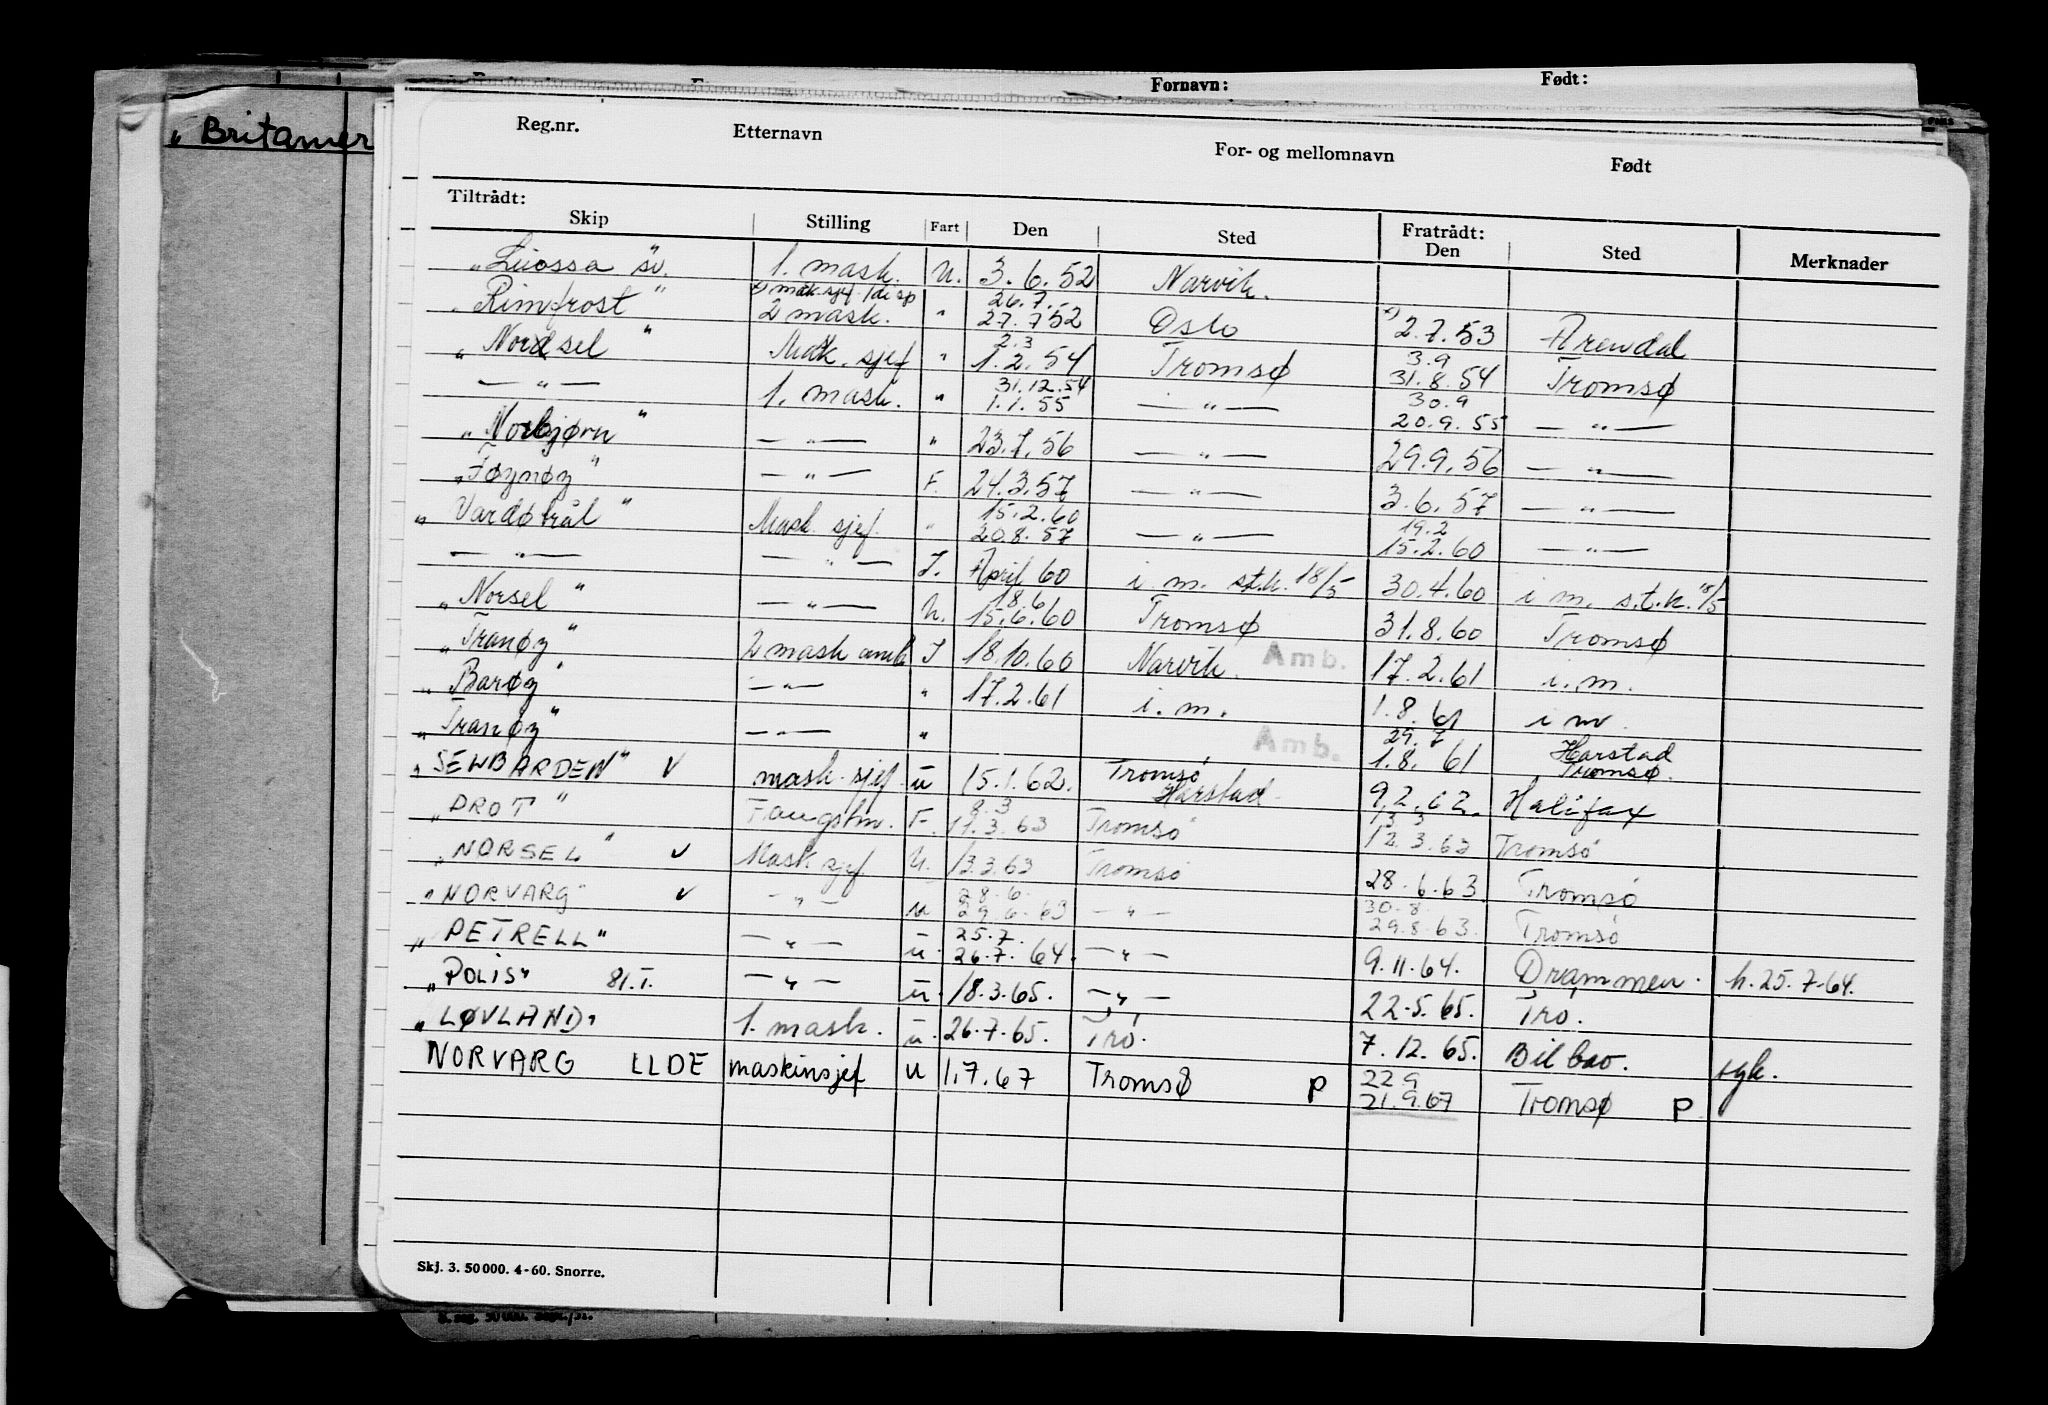 Fornavn: Født:
„Britamer
Reg.nr. Etternavn For- og mellomnavn Født
Tiltrådt: Fratrådt:
Skip Stilling Fart Den Sted Den Sted Merknader
„Luossa" sv. 1. mask. U. 3.6.52 Narvik.
mask.sjef /disp 26.7.
„Rimfrost" 2 mask. " 27.7.52 Oslo 2.7.53 Arendal
2.3 3.9
„Norsel" Mask. sjef " 1.2.54 Tromsø 31.8.54 Tromsø
31.12.54 30.9
— " — 1. mask. " 1.1.55 — " — 20.9.55 — " —
„Norbjørn" — " — " 23.7.56 — " — 29.9.56 — " —
„Føynøy" — " — F. 24.3.57 — " — 3.6.57 — " —
15.2.60 19.2
„Vardøtrål" Mask. sjef " 20.8.57 — " — 15.2.60 — " —
— " — — " — I. April 60 i.m. st.k. 18/5 30.4.60 i m. s.t.k. 18/5
18.6
„Norsel" — " — U. 15.6.60 Tromsø 31.8.60 Tromsø
„Tranøy" 2 mask amb I 18.10.60 Narvik. Amb. 17.2.61 i.m.
„Barøy" — " — " 17.2.61 i.m. 1.8.61 i m.
29.7 Harstad
„Tranøy" — " — " Amb. 1.8.61 Tromsø.
„SEWBARDEN" V mask. sjef u 15.1.62. Tromsø Harstad 9.2.62. Halifax
8.3 13.3
„DROT" Fangstm. F. 11.3.63 Tromsø 12.3.63 Tromsø
„NORSEL" V Mask sjef U. 13.3.63 Tromsø 28.6.63. Tromsø
28.6. 30.8.
„NORVARG" V — " — u 29.6.63 — " — 29.8.63. Tromsø
25.7.
„PETRELL" — " — u. 26.7.64. — " — 9.11.64. Drammen. h. 25.7.64.
„POLIS" 81.I. — " — u. 18.3.65. — " — 22.5.65. Trø.
„LØVLAND" 1. mask. u. 26.7.65. Trø. 7.12.65. Bilbao. syk.
22.9
NORVARG LLDE maskinsjef u 1.7.67 Tromsø P 21.9.67 Tromsø P
Skj. 3. 50 000. 4-60. Snorre.